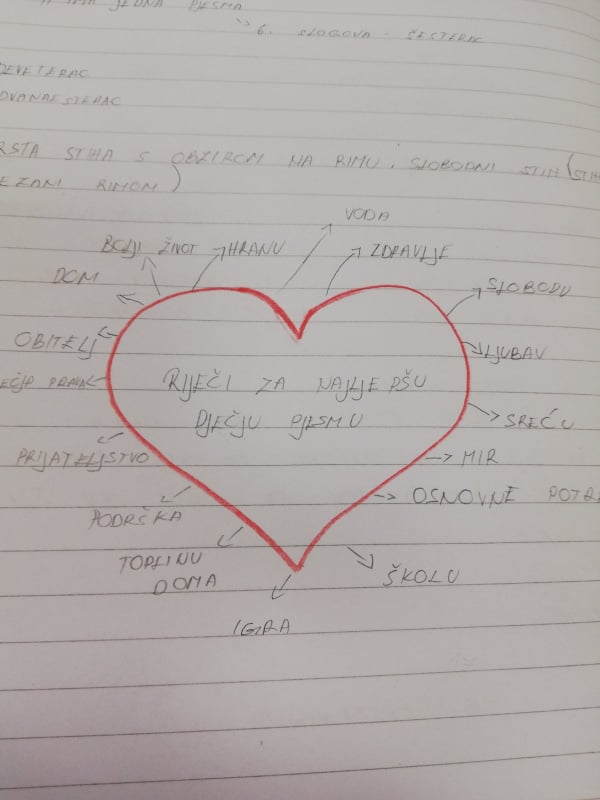 IMA JEDNA PJESMA
6. SLOGOVA - ŠESTERAC
DEVETERAC
DVANAESTERAC
RSTA STIHA S OBZIROM NA RIMU. SLOBODNI STIH (STIH
EZANI RIMOM)
VODA
BOLJI ŽIVOT
HRANU
ZDRAVLJE
DOM
SLOBODU
OBITELJ
LJUBAV
RIJEČI ZA NAJLJEPŠU
DJEČJU PJESMU
EČJA PRAVA
SREĆU
PRIJATELJSTVO
MIR
OSNOVNE POTR
PODRŠKA
TOPLINU
DOMA
ŠKOLU
IGRA